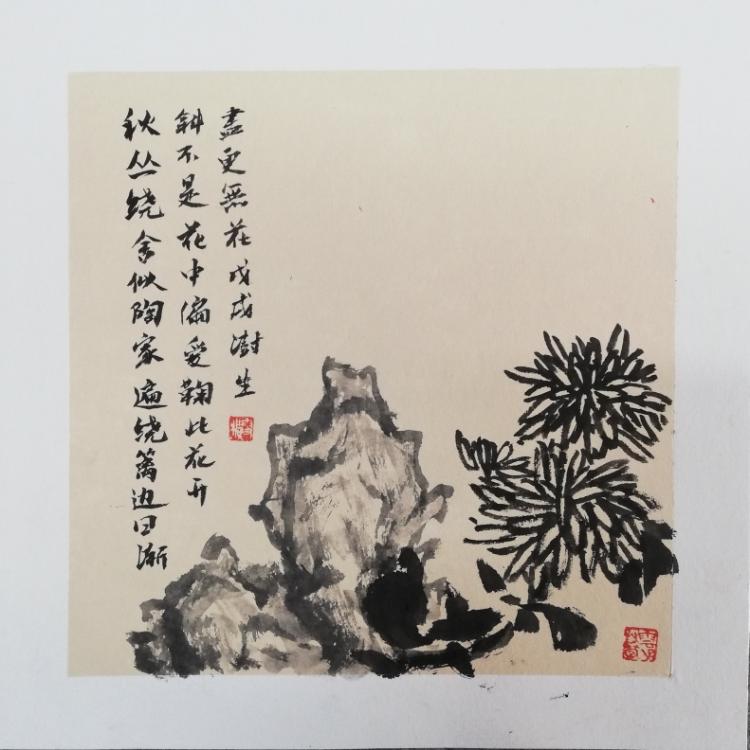 秋丛绕舍似陶家遍绕篱边日渐
斜不是花中偏爱鞠此花开
盡更無花戊戌澍生